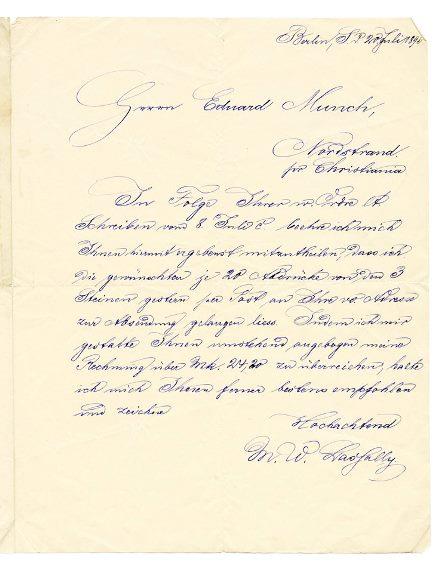 Berlin, S. d 20 Juli 1896
Herrn Eduard Munch,
Nordstrand
pr Christiania
In Folge Ihren w. Ordre lt
Schreiben vom 8 Juli beehre ich mich
Ihnen hiermit ergebenst mitzutheilen, dass ich
die gewünschten je 20 Abdrücke von den 3
Steinen gestern per Post an Ihre w. Adresse
zur Absendung gelangen liess. Indem ich mir
gestatte Ihnen umstehend angebogen meine
Rechnung über Mk. 24,20 zu überreichen, halte
ich mich Ihnen ferner bestens empfohlen
und zeichne
Hochachtend
M. W. Lassally